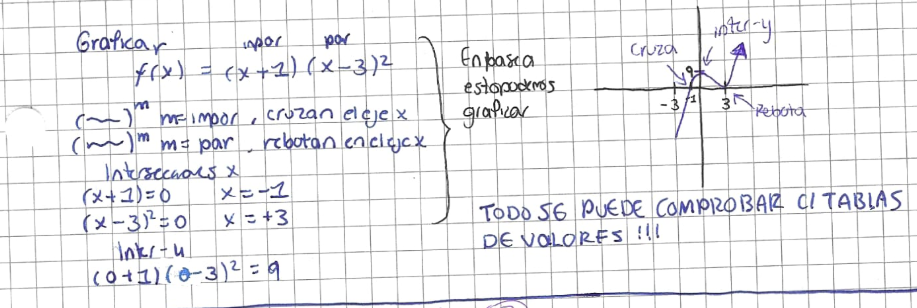 Graficar
impar par
f(x) = (x+1)(x-3)²
(~~)^m m=impar, cruzan el eje x
(~~)^m m= par, rebotan en el eje x
Intersecciones x
(x+1)=0 x=-1
(x-3)²=0 x=+3
Inter-y
(0+1)(0-3)² = 9
En base a
esto podemos
graficar
Cruza
inter-y
9
-3
-1
3
Rebota
TODO SE PUEDE COMPROBAR C/ TABLAS
DE VALORES !!!